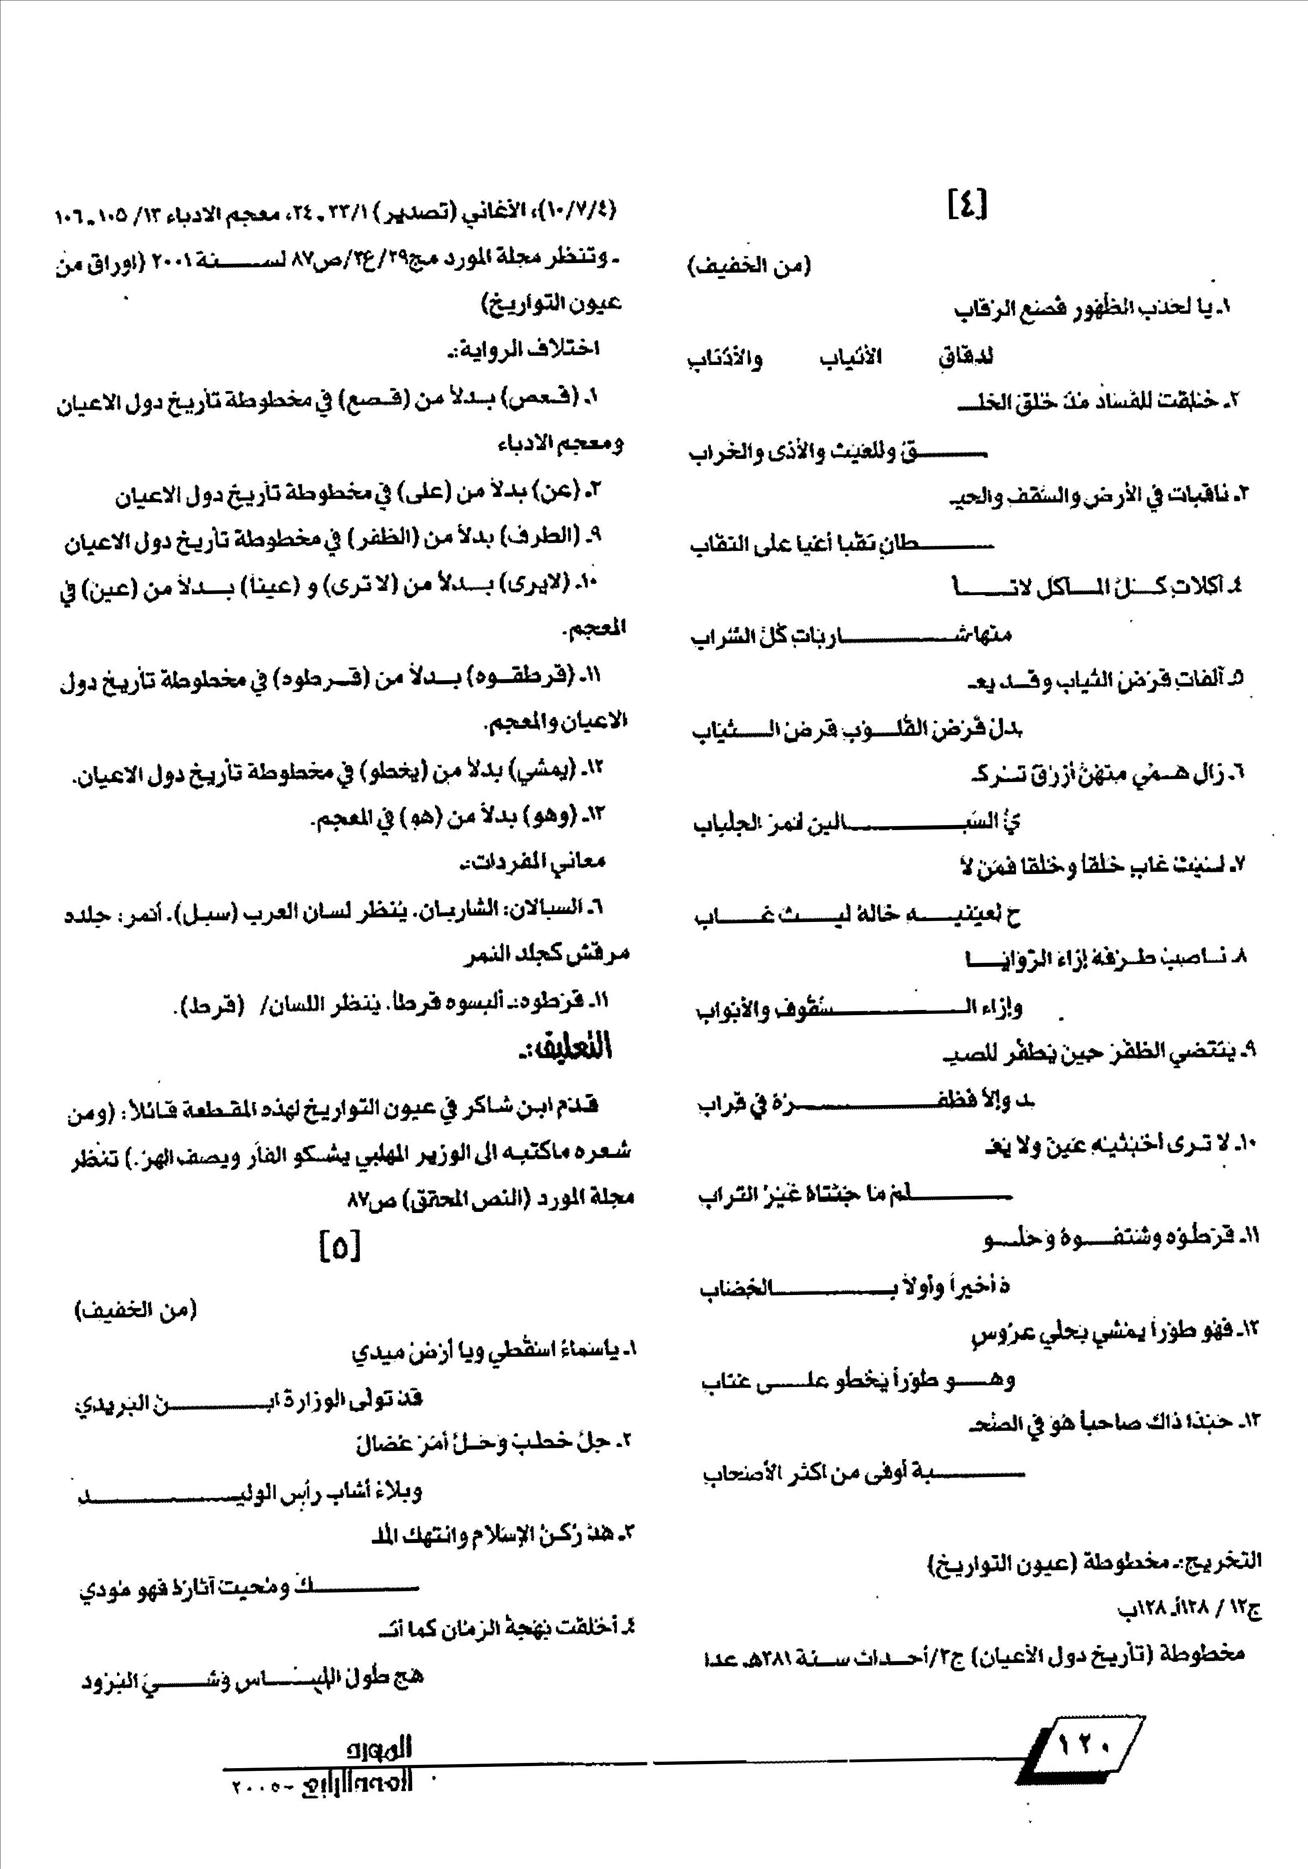 [٤]
(من الخفيف)
١ـ يا لحدب الظهور قصع الرقاب
لدقاق الأنياب والأذناب
٢ـ خلقت للفساد مذ خلق الخلـ
ـق وللعيث والأذى والخراب
٣ـ ناقبات في الأرض والسقف والحيـ
ـطان نقبا أعيا على النقاب
٤ـ آكلات كل المآكل لاتـا
منها شاربات كل الشراب
٥ـ آلفات قرض الثياب وقد يعـ
ـدل قرض القلوب قرض الثياب
٦ـ زال همي منهن أزرق تركـ
ـي السبالين انمر الجلباب
٧ـ ليث غاب خلقا وخلقا فمن لا
ح لعينيه خاله ليث غاب
٨ـ ناصب طرفه إزاء الزوايا
وإزاء السقوف والأبواب
٩ـ ينتضي الظفر حين يظفر للصيـ
ـد وإلا فظفره في قراب
١٠ـ لا ترى أخبثيه عين ولا يعـ
ـلم ما جنتاه غير التراب
١١ـ قرطوه وشنفوه وحلو
ه أخيراً وأولاً بالخضاب
١٢ـ فهو طوراً يمشي بحلي عروس
وهو طوراً يخطو على عناب
١٣ـ حبذا ذاك صاحباً هو في الصحـ
ـبة أوفى من اكثر الأصحاب
التخريج:ـ مخطوطة (عيون التواريخ)
ج١٢ / ١٢٨أـ ١٢٨ب
مخطوطة (تأريخ دول الأعيان) ج٣/أحداث سنة ٣٨١هـ عدا
(١٠/٧/٤)، الأغاني (تصدير) ٣٣/١ ـ ٣٤، معجم الادباء ١٣/ ١٠٥ـ ١٠٦
ـ وتنظر مجلة المورد مج٢٩/ع٣/ص٨٧ لسنة ٢٠٠١ (اوراق من
عيون التواريخ)
اختلاف الرواية:ـ
١ـ (قعص) بدلاً من (قصع) في مخطوطة تأريخ دول الاعيان
ومعجم الادباء
٣ـ (عن) بدلاً من (على) في مخطوطة تأريخ دول الاعيان
٩ـ (الطرف) بدلاً من (الظفر) في مخطوطة تأريخ دول الاعيان
١٠ـ (لايرى) بدلاً من (لا ترى) و (عيناً) بدلاً من (عين) في
المعجم.
١١ـ (قرطقوه) بدلاً من (قرطوه) في مخطوطة تأريخ دول
الاعيان والمعجم.
١٢ـ (يمشي) بدلاً من (يخطو) في مخطوطة تأريخ دول الاعيان.
١٣ـ (وهو) بدلاً من (هو) في المعجم.
معاني المفردات:ـ
٦ـ السبالان: الشاربان. يُنظر لسان العرب (سبل). أنمر: جلده
مرقش كجلد النمر
١١ـ قرطوه:ـ ألبسوه قرطاً. ينظر اللسان/ (قرط).
التعليق:ـ
قدم ابن شاكر في عيون التواريخ لهذه المقطعة قائلاً: (ومن
شعره ماكتبه الى الوزير المهلبي يشكو الفأر ويصف الهر.) تنظر
مجلة المورد (النص المحقق) ص٨٧
[٥]
(من الخفيف)
١ـ ياسماء اسقطي ويا أرض ميدي
قد تولى الوزارة ابن البريدي
٢ـ جل خطب وحل أمر عضال
وبلاء أشاب رأس الوليد
٣ـ هد ركن الإسلام وانتهك الملـ
ـك ومحيت آثاره فهو مودي
٤ـ أخلقت بهجة الزمان كما أنـ
ـهج طول اللباس وشي البرود
١٢٠
المورد
العدد الرابع - ٢٠٠٥